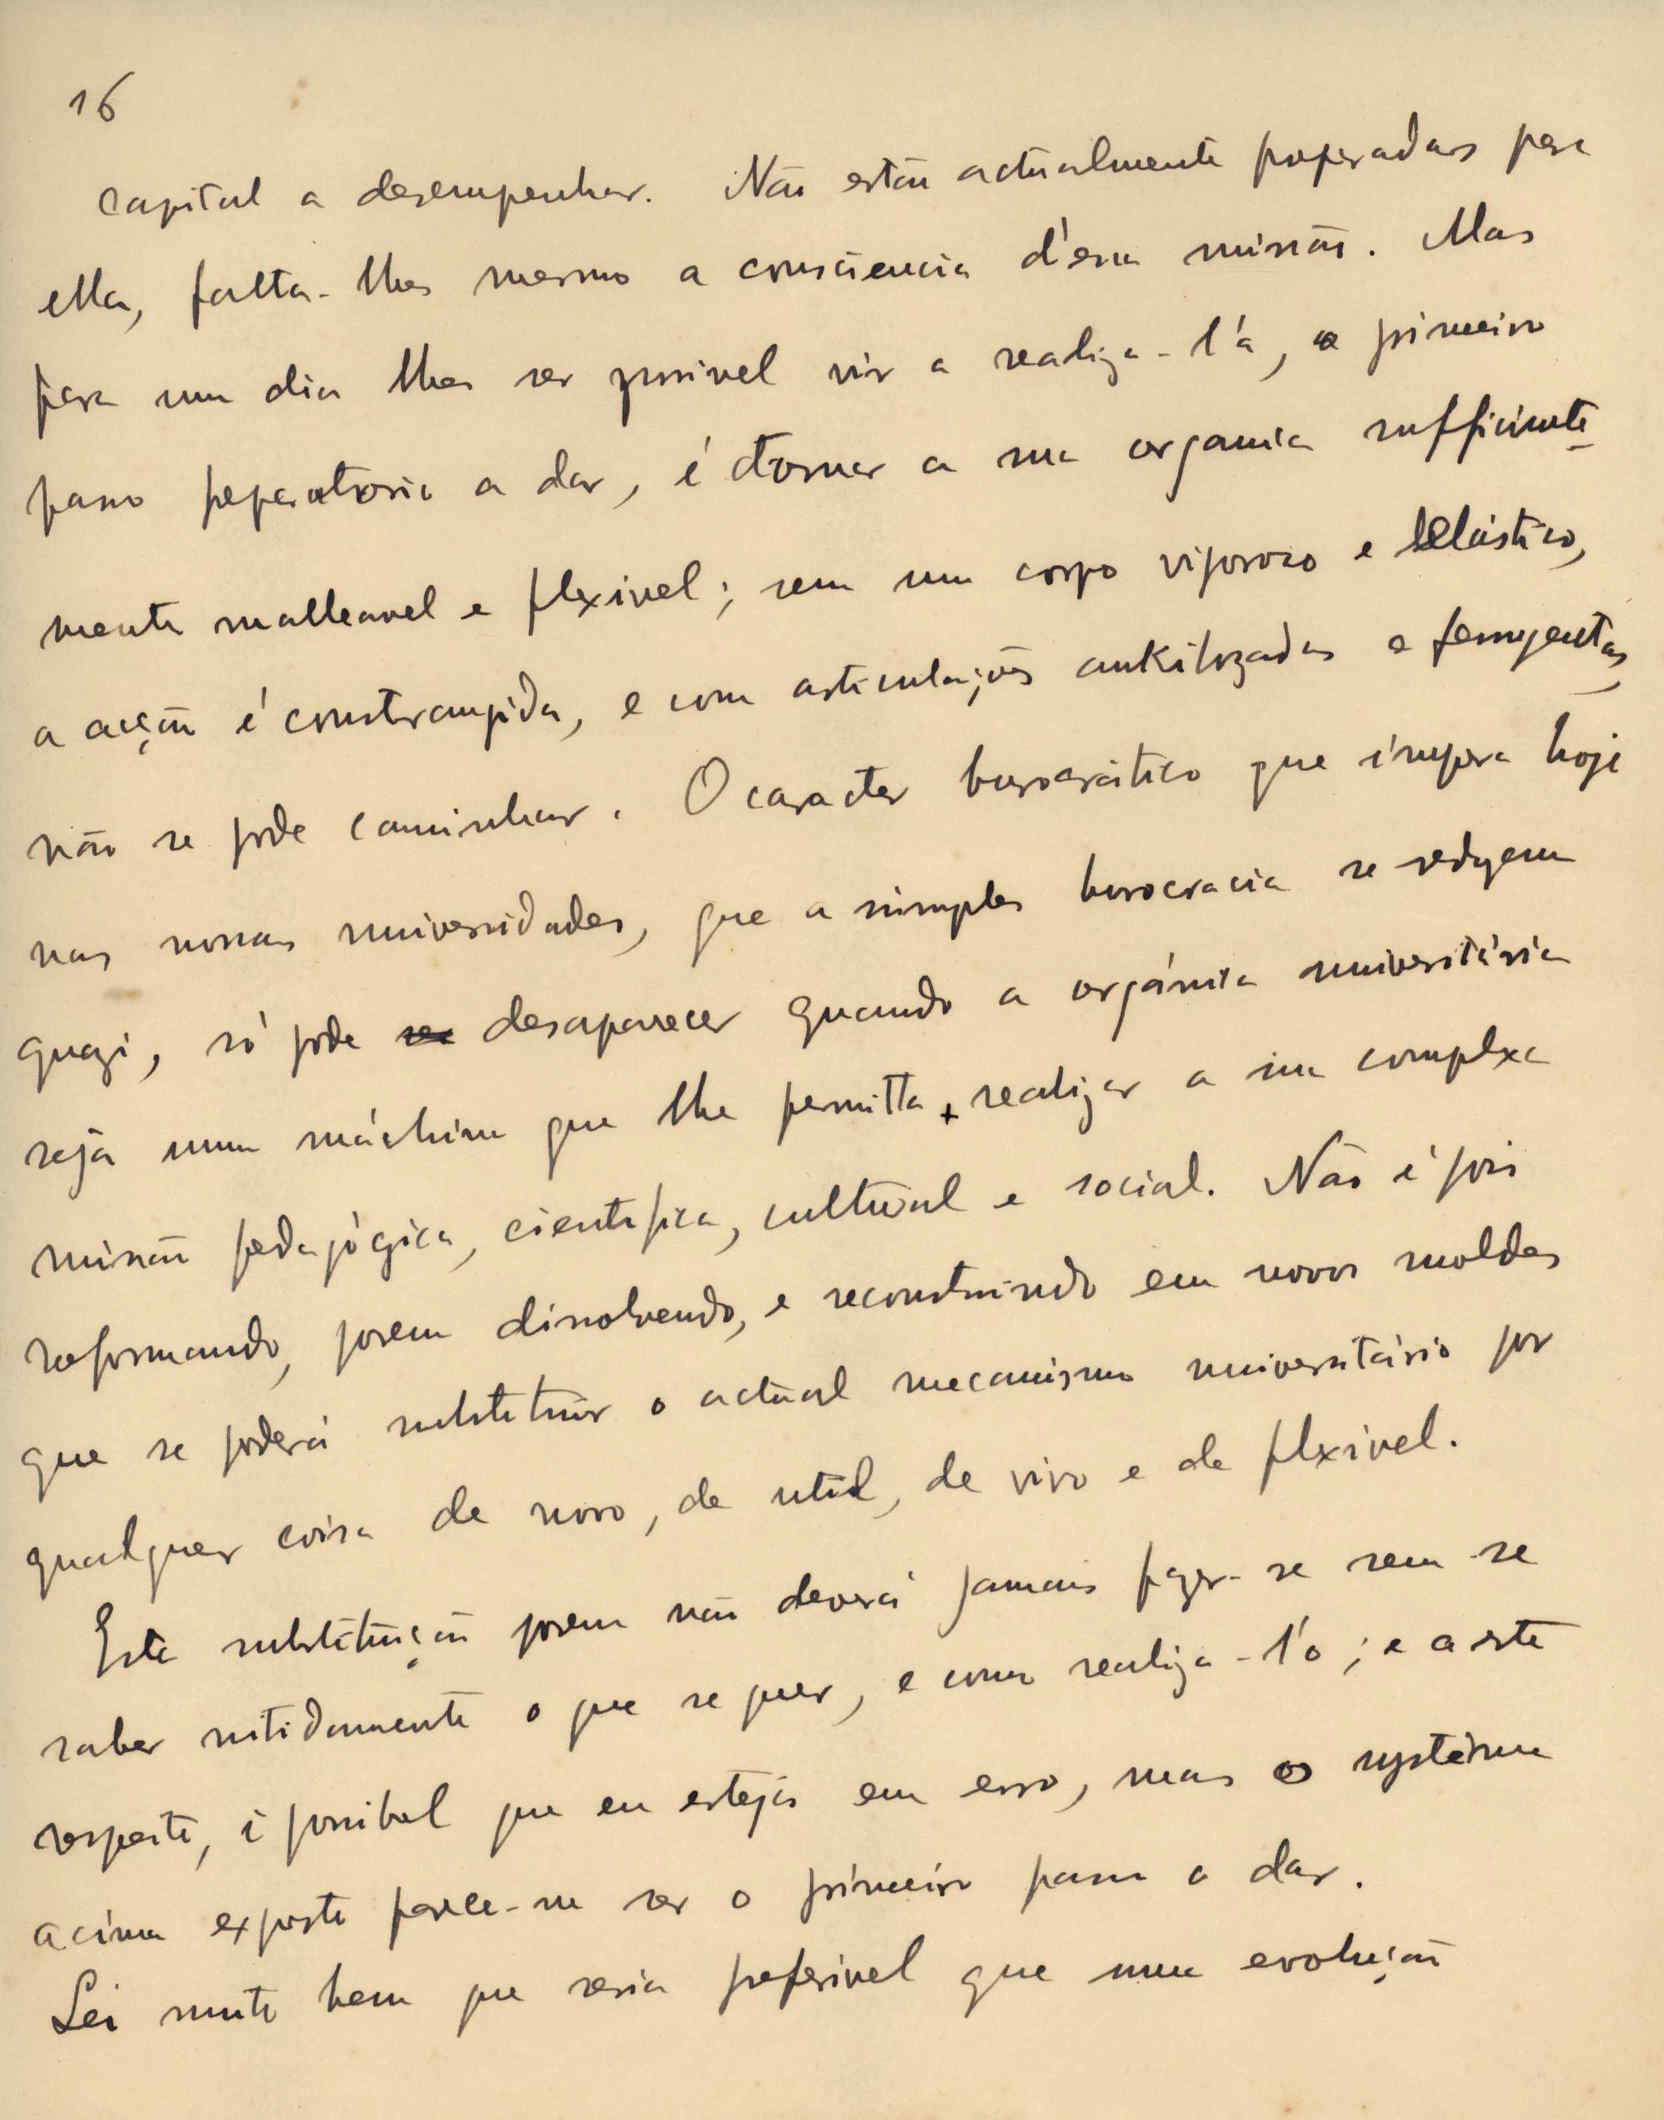 16
capital a desempenhar. Não estão actualmente preparadas para
ella, falta-lhes mesmo a consciencia d'essa missão. Mas
para um dia lhes ser possivel vir a realiza-l'a, o primeiro
passo preparatorio a dar, é tornar a sua organica sufficiente-
mente malleavel e flexivel; sem um corpo vigorozo e elástico,
a acção é constrangida, e com articulações ankilozadas e ferrugentas,
não se pode caminhar. O caracter burocrático que impera hoje
nas nossas universidades, que a simples burocracia se reduzem
quazi, só pode desaparecer quando a orgánica universitária
seja uma máchina que lhe permitta realizar a sua complexa
missão pedagógica, cientifica, cultural e social. Não é pois
reformando, porem dissolvendo, e reconstruindo em novos moldes
que se poderá substituir o actual mecanismo universitário por
qualquer coisa de novo, de util, de vivo e de flexivel.
Esta substituição porem não deverá jamais fazer-se sem se
saber nitidamente o que se quer, e como realiza-l'o; e a este
respeito, é possibel que eu esteja em erro, mas o systêma
acima exposto parece-me ser o primeiro passo a dar.
Sei muito bem que seria preferivel que uma evolução